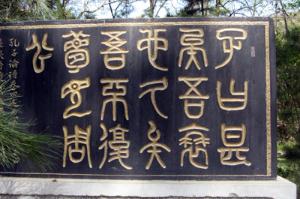 子曰甚
矣吾衰
也久矣
吾不復
夢見周
公
孔子論語